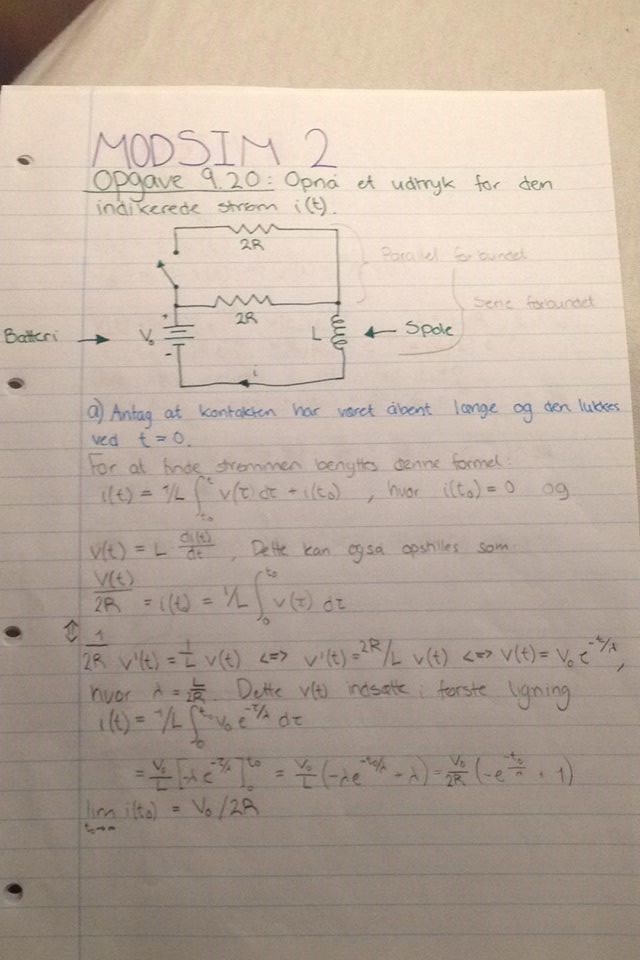 MODSIM 2
Opgave 9.20: Opnå et udtryk for den
indikerede strøm i(t).
2R
Parallel forbundet
2R
Serie forbundet
Batteri
+
V₀
-
L
Spole
i
a) Antag at kontakten har været åbent længe og den lukkes
ved t = 0.
For at finde strømmen benyttes denne formel:
i(t) = 1/L ∫_{t₀}^{t} v(τ) dτ + i(t₀) , hvor i(t₀) = 0 og
v(t) = L di(t)/dt , Dette kan også opstilles som
V(t)/2R = i(t) = 1/L ∫_{0}^{t₀} v(τ) dτ
⇕ 1/2R v'(t) = 1/L v(t) <=> v'(t) = 2R/L v(t) <=> v(t) = V₀ e^{-t/λ} ,
hvor λ = L/2R. Dette v(t) indsætte i første ligning
i(t) = 1/L ∫_{0}^{t₀} V₀ e^{-τ/λ} dτ
= V₀/L [-λe^{-τ/λ}]_{0}^{t₀} = V₀/L (-λe^{-t₀/λ} + λ) = V₀/2R (-e^{-t₀/λ} + 1)
lim_{t₀→∞} i(t₀) = V₀/2R